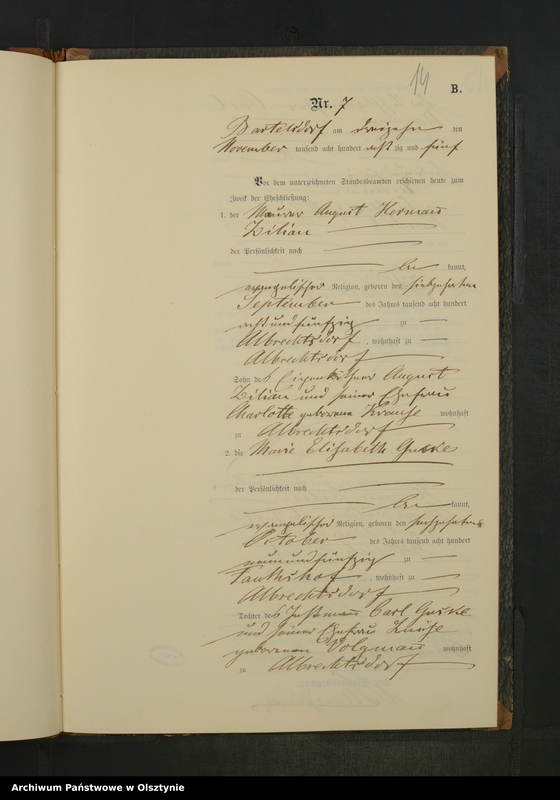 14
B.
Nr. 7
Bartelsdorf am dreizehn ten
November tausend acht hundert acht zig und fünf
Vor dem unterzeichneten Standesbeamten erschienen heute zum
Zweck der Eheschließung:
1. der Maurer August Hermann
Zilian
der Persönlichkeit nach
be kannt,
evangelischer Religion, geboren den siebzehnten
September des Jahres tausend acht hundert
acht und fünfzig zu
Albrechtsdorf, wohnhaft zu
Albrechtsdorf
Sohn des Eigenkäthner August
Zilian und seiner Ehefrau
Charlotte geborene Krause wohnhaft
zu Albrechtsdorf
2. die Marie Elisabeth Guske
der Persönlichkeit nach
be kannt,
evangelischer Religion, geboren den sechszehnten
October des Jahres tausend acht hundert
neun und fünfzig zu
, wohnhaft zu
Albrechtsdorf
Tochter des Instmann Carl Guske
und seiner Ehefrau
geborenen Volgmann wohnhaft
zu Albrechtsdorf
Archiwum Państwowe w Olsztynie